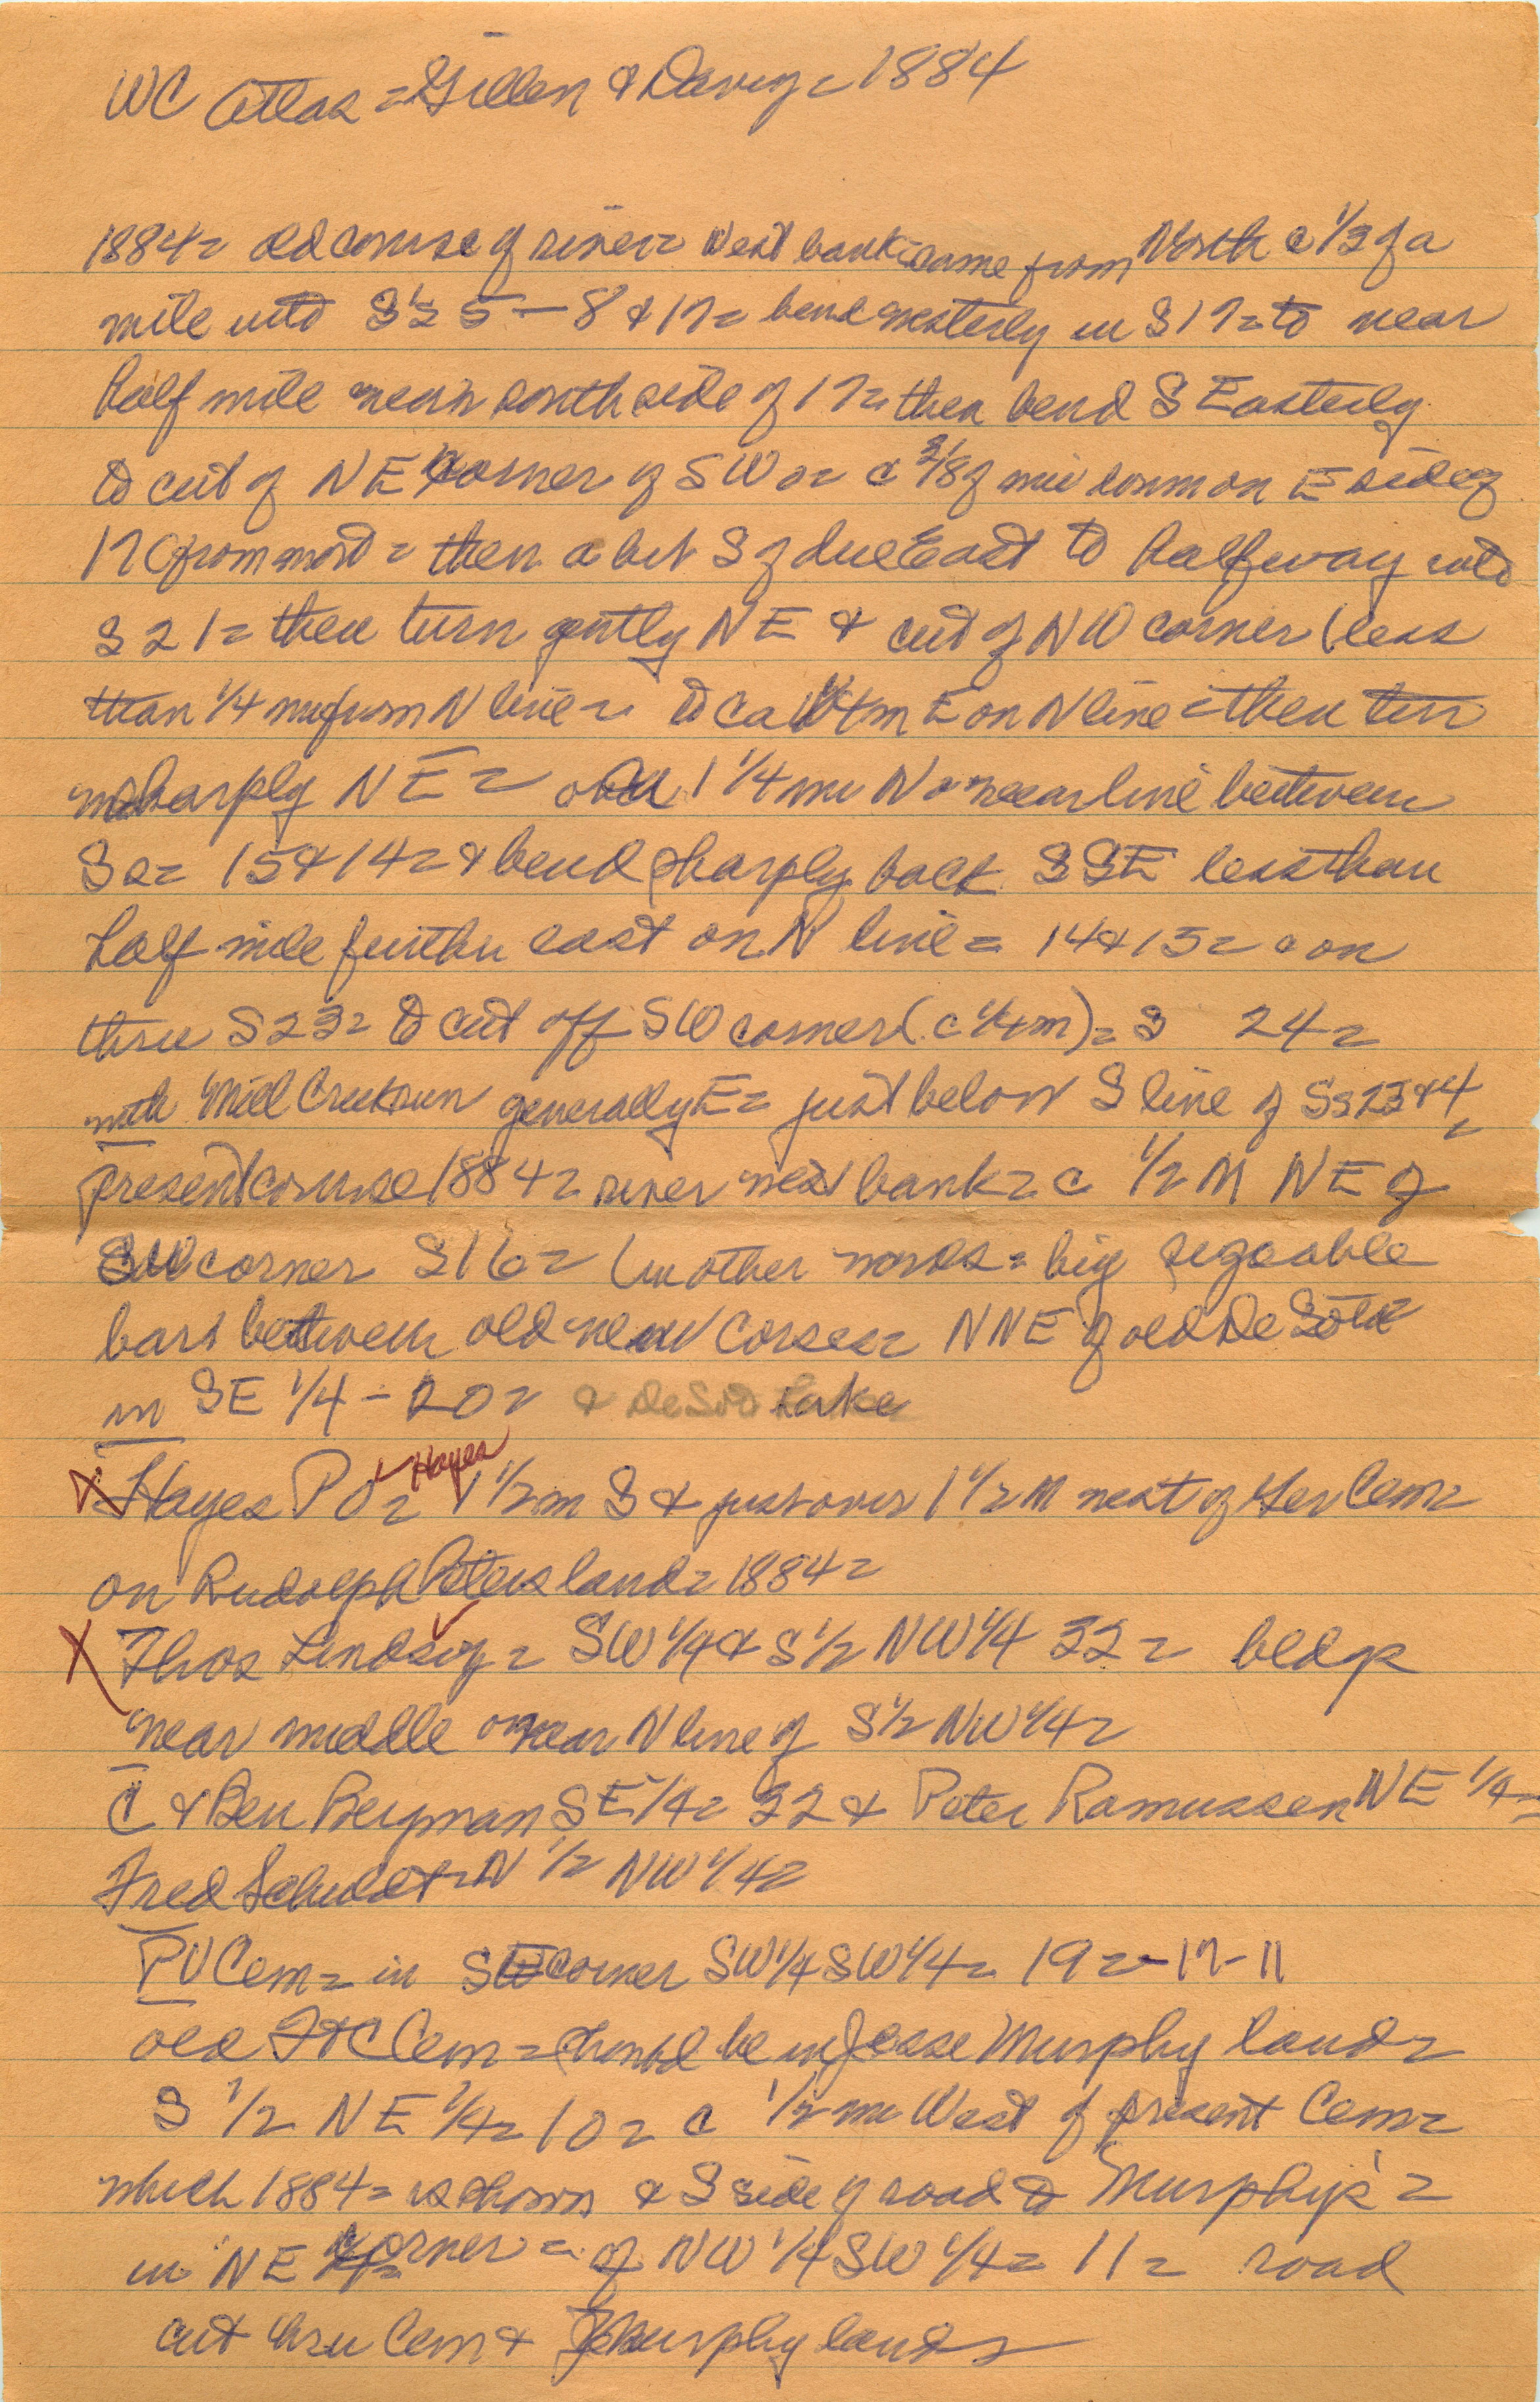 WC Atlas = Gillen & Davy = 1884
1884= old course of river= West bank= came from North c 1/3 of a
mile into S's 5 - 8 & 17= bend westerly in S17= to near
half mile near south side of 17= then bend S Easterly
to cut of NE corner of SW or c 3/8 of mi common E side of
17 (from = then a bit S of due East to half way into
S21= then turn gently NE & cut of NW corner (less
than 1/4 mi from N line= to ca 1/4 m E on N line = then turn
sharply NE = 1 1/4 mi N = near line between
Ss= 15 & 14= & bend sharply back SSE less than
half mile further east on N line= 14 & 15= & on
thru S23= to cut off SW corner (c 1/4 m)= S 24=
with Mill Creek run generally E= just below S line of Ss 23 & 4=
present course 1884= river west bank= c 1/2 M NE of
SW corner S16= (in other words= big sizeable
bars between old new corses= NNE of old DeSoto
in SE 1/4 - 20= & DeSoto Lake
X Hayes PO= Hayes 1 1/2 m S & just over 1 1/2 M west of Ger Cem=
on Rudolph Peters land= 1884=
X Thos Lindsey= SW 1/4 & S 1/2 NW 1/4 32= bldgs
near middle or near N line of S 1/2 NW 1/4=
C & Ben Bergman SE 1/4= 32 & Peter Ramussen NE 1/4=
Fred Schuldt= N 1/2 NW 1/4=
PV Cem= in SW corner SW 1/4 SW 1/4= 19=-17-11
old FtC Cem= should be in Jesse Murphy land=
S 1/2 NE 1/4= 10= c 1/2 mi West of present Cem=
which 1884= is shown & S side of road to Murphy's=
in NE corner= of NW 1/4 SW 1/4= 11= road
cut thru Cem & Murphy lands